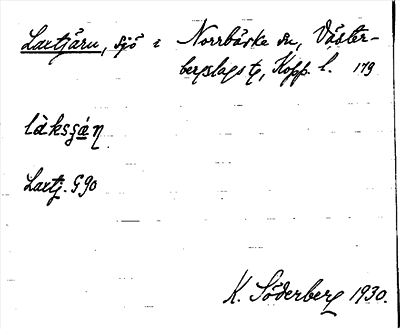 Laxtjärn, sjö i Norrbärke sn, Väster-
bergslags tg, Kopp. l. 179
làksʂä̀ɳ
Laxtj. G90
K. Söderberg 1930.